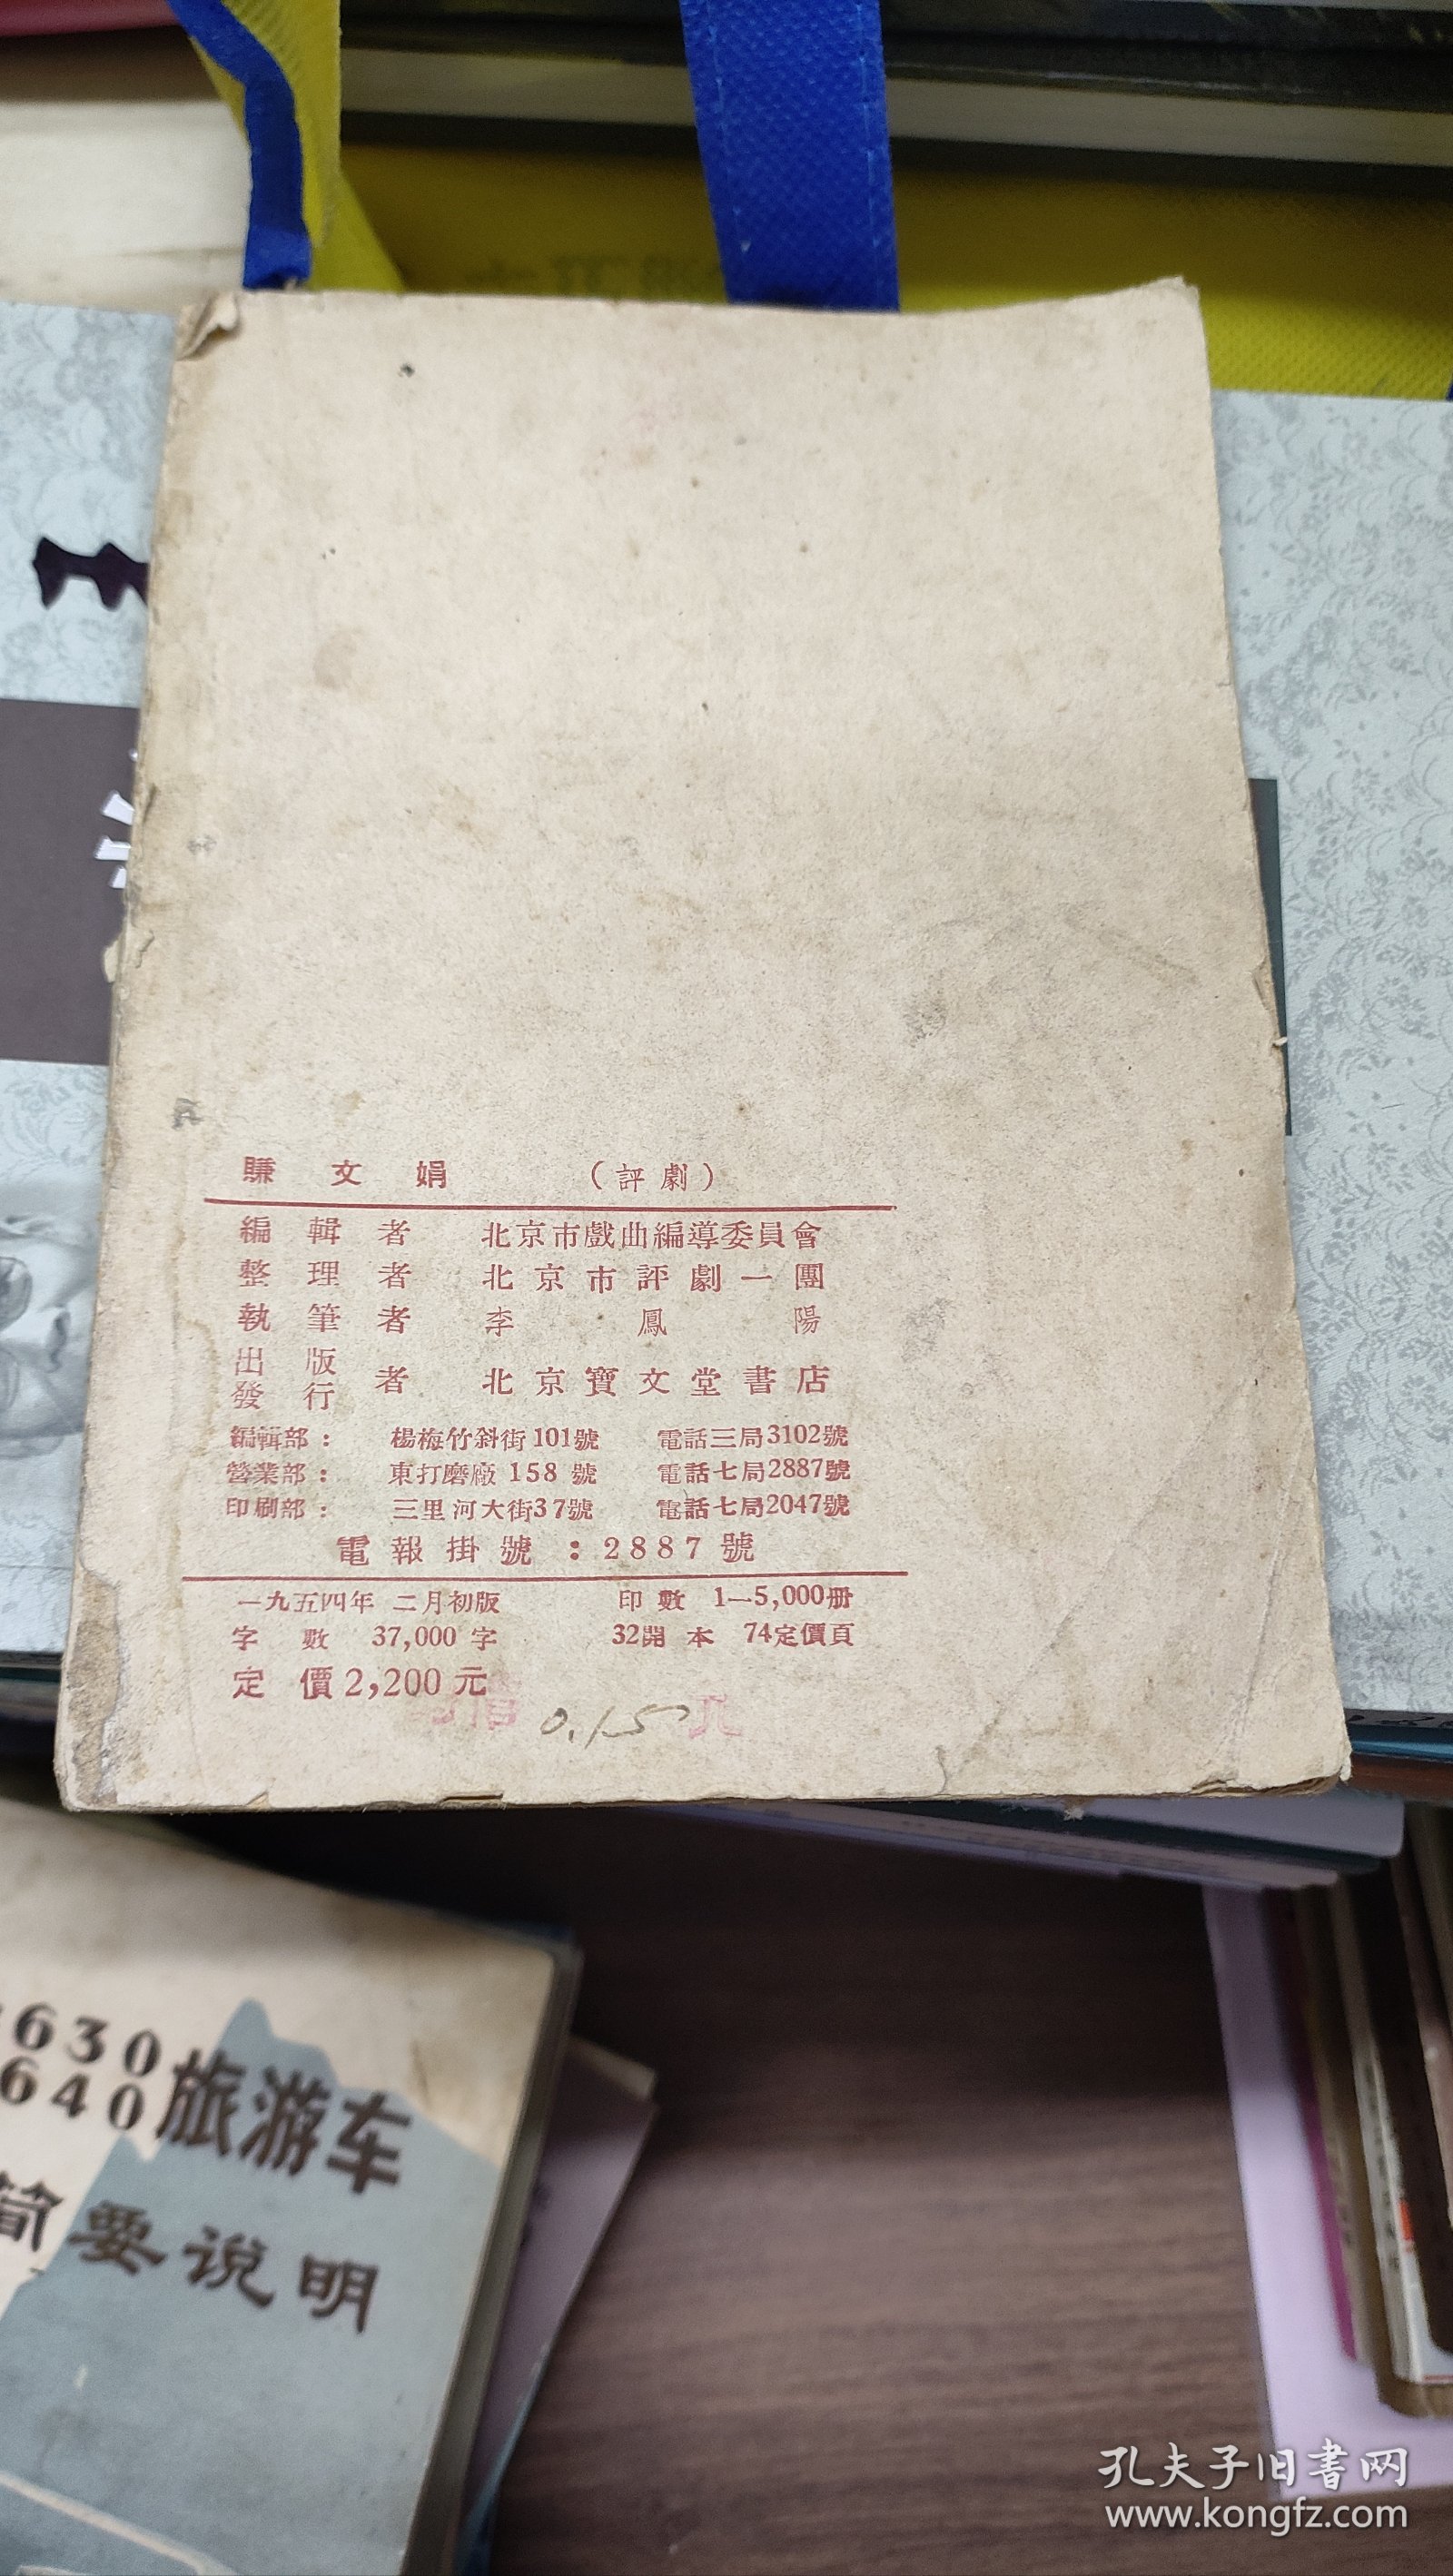 賺文娟 （評劇）
編輯者 北京市戲曲編導委員會
整理者 北京市評劇一團
執筆者 李鳳陽
出版
發行 者 北京寶文堂書店
編輯部： 楊梅竹斜街101號 電話三局3102號
營業部： 東打磨廠158號 電話七局2887號
印刷部： 三里河大街37號 電話七局2047號
電報掛號：2887號
一九五四年二月初版 印數 1—5,000册
字數 37,000字 32開本 74定價頁
定價2,200元
0.15元
630
640
旅游车
简要说明
孔夫子旧书网
www.kongfz.com